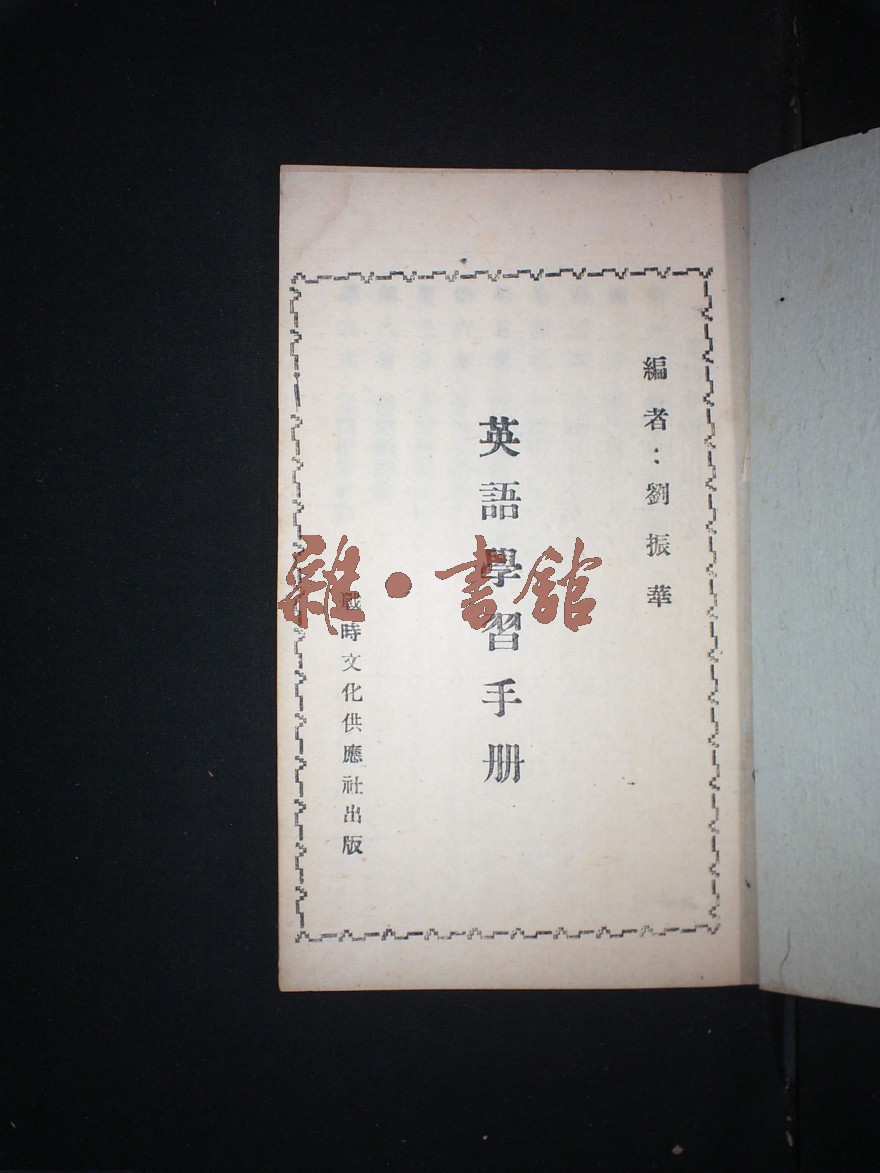 編者：劉振華
英語學習手册
戰時文化供應社出版
雜·書館